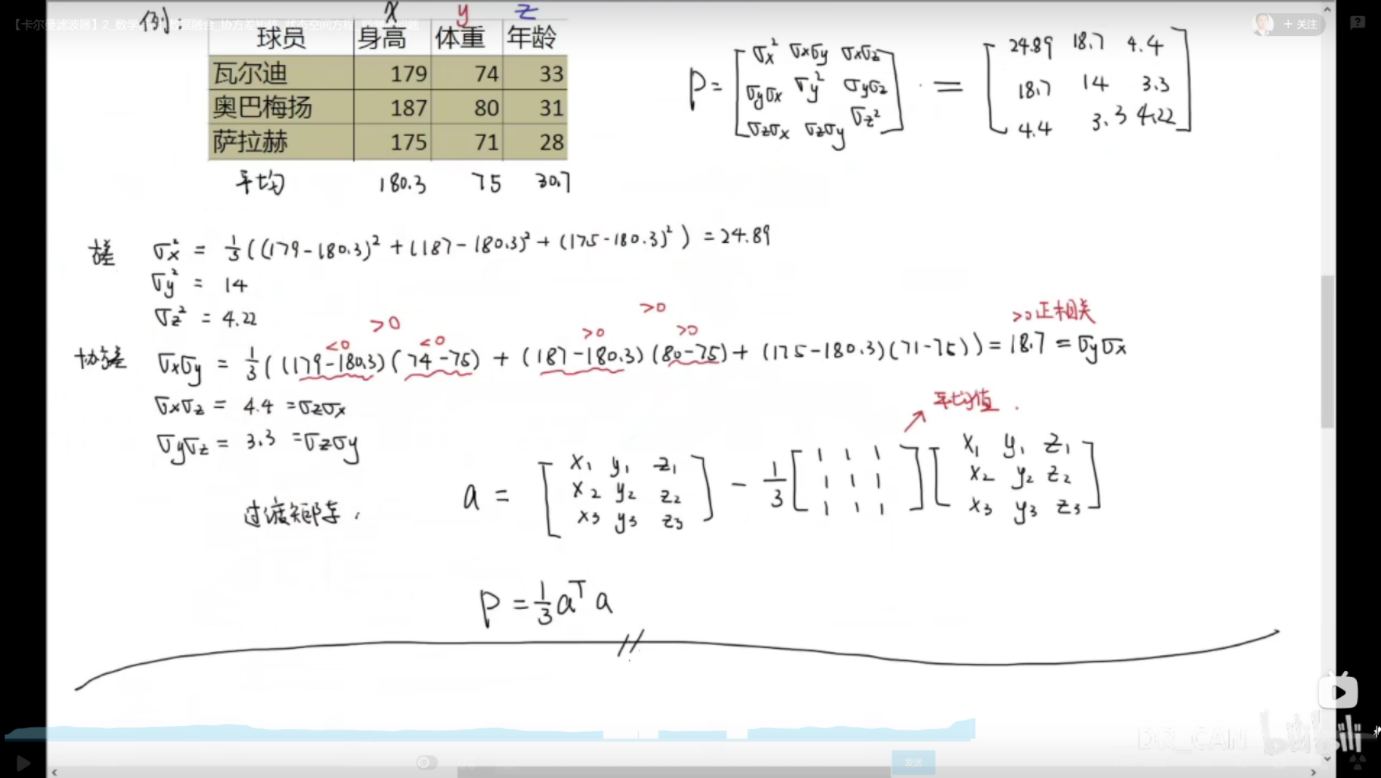 【卡尔曼滤波器】2_数学
+ 关注
例:
x y z
球员 身高 体重 年龄
瓦尔迪 179 74 33
奥巴梅扬 187 80 31
萨拉赫 175 71 28
平均 180.3 75 30.7
P = [σx² σxσy σxσz
σyσx σy² σyσz
σzσx σzσy σz²]
= [24.89 18.7 4.4
18.7 14 3.3
4.4 3.3 4.22]
方差 σx² = 1/3((179-180.3)²+(187-180.3)²+(175-180.3)²) = 24.89
σy² = 14
σz² = 4.22
>0 >0
<0 <0 >0 >0 >0正相关
协方差 σxσy = 1/3((179-180.3)(74-75)+(187-180.3)(80-75)+(175-180.3)(71-75)) = 18.7 = σyσx
σxσz = 4.4 = σzσx
σyσz = 3.3 = σzσy
平均值.
过渡矩阵.
a = [x₁ y₁ z₁
x₂ y₂ z₂
x₃ y₃ z₃]
- 1/3 [1 1 1
1 1 1
1 1 1]
[x₁ y₁ z₁
x₂ y₂ z₂
x₃ y₃ z₃]
P = 1/3 aᵀa
DR_CAN
bilibili
发送